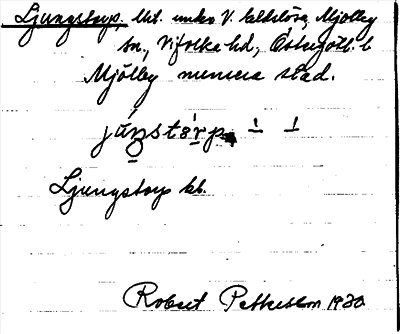 Ljungstorp, Mt. under V. Veldslösa, Mjölby
sn., Vifolka hd, Östergötl. l.
Mjölby numera stad.
júŋstòrp ∸ ⊥
Ljungstorp kb.
Robert Pettersson 1930